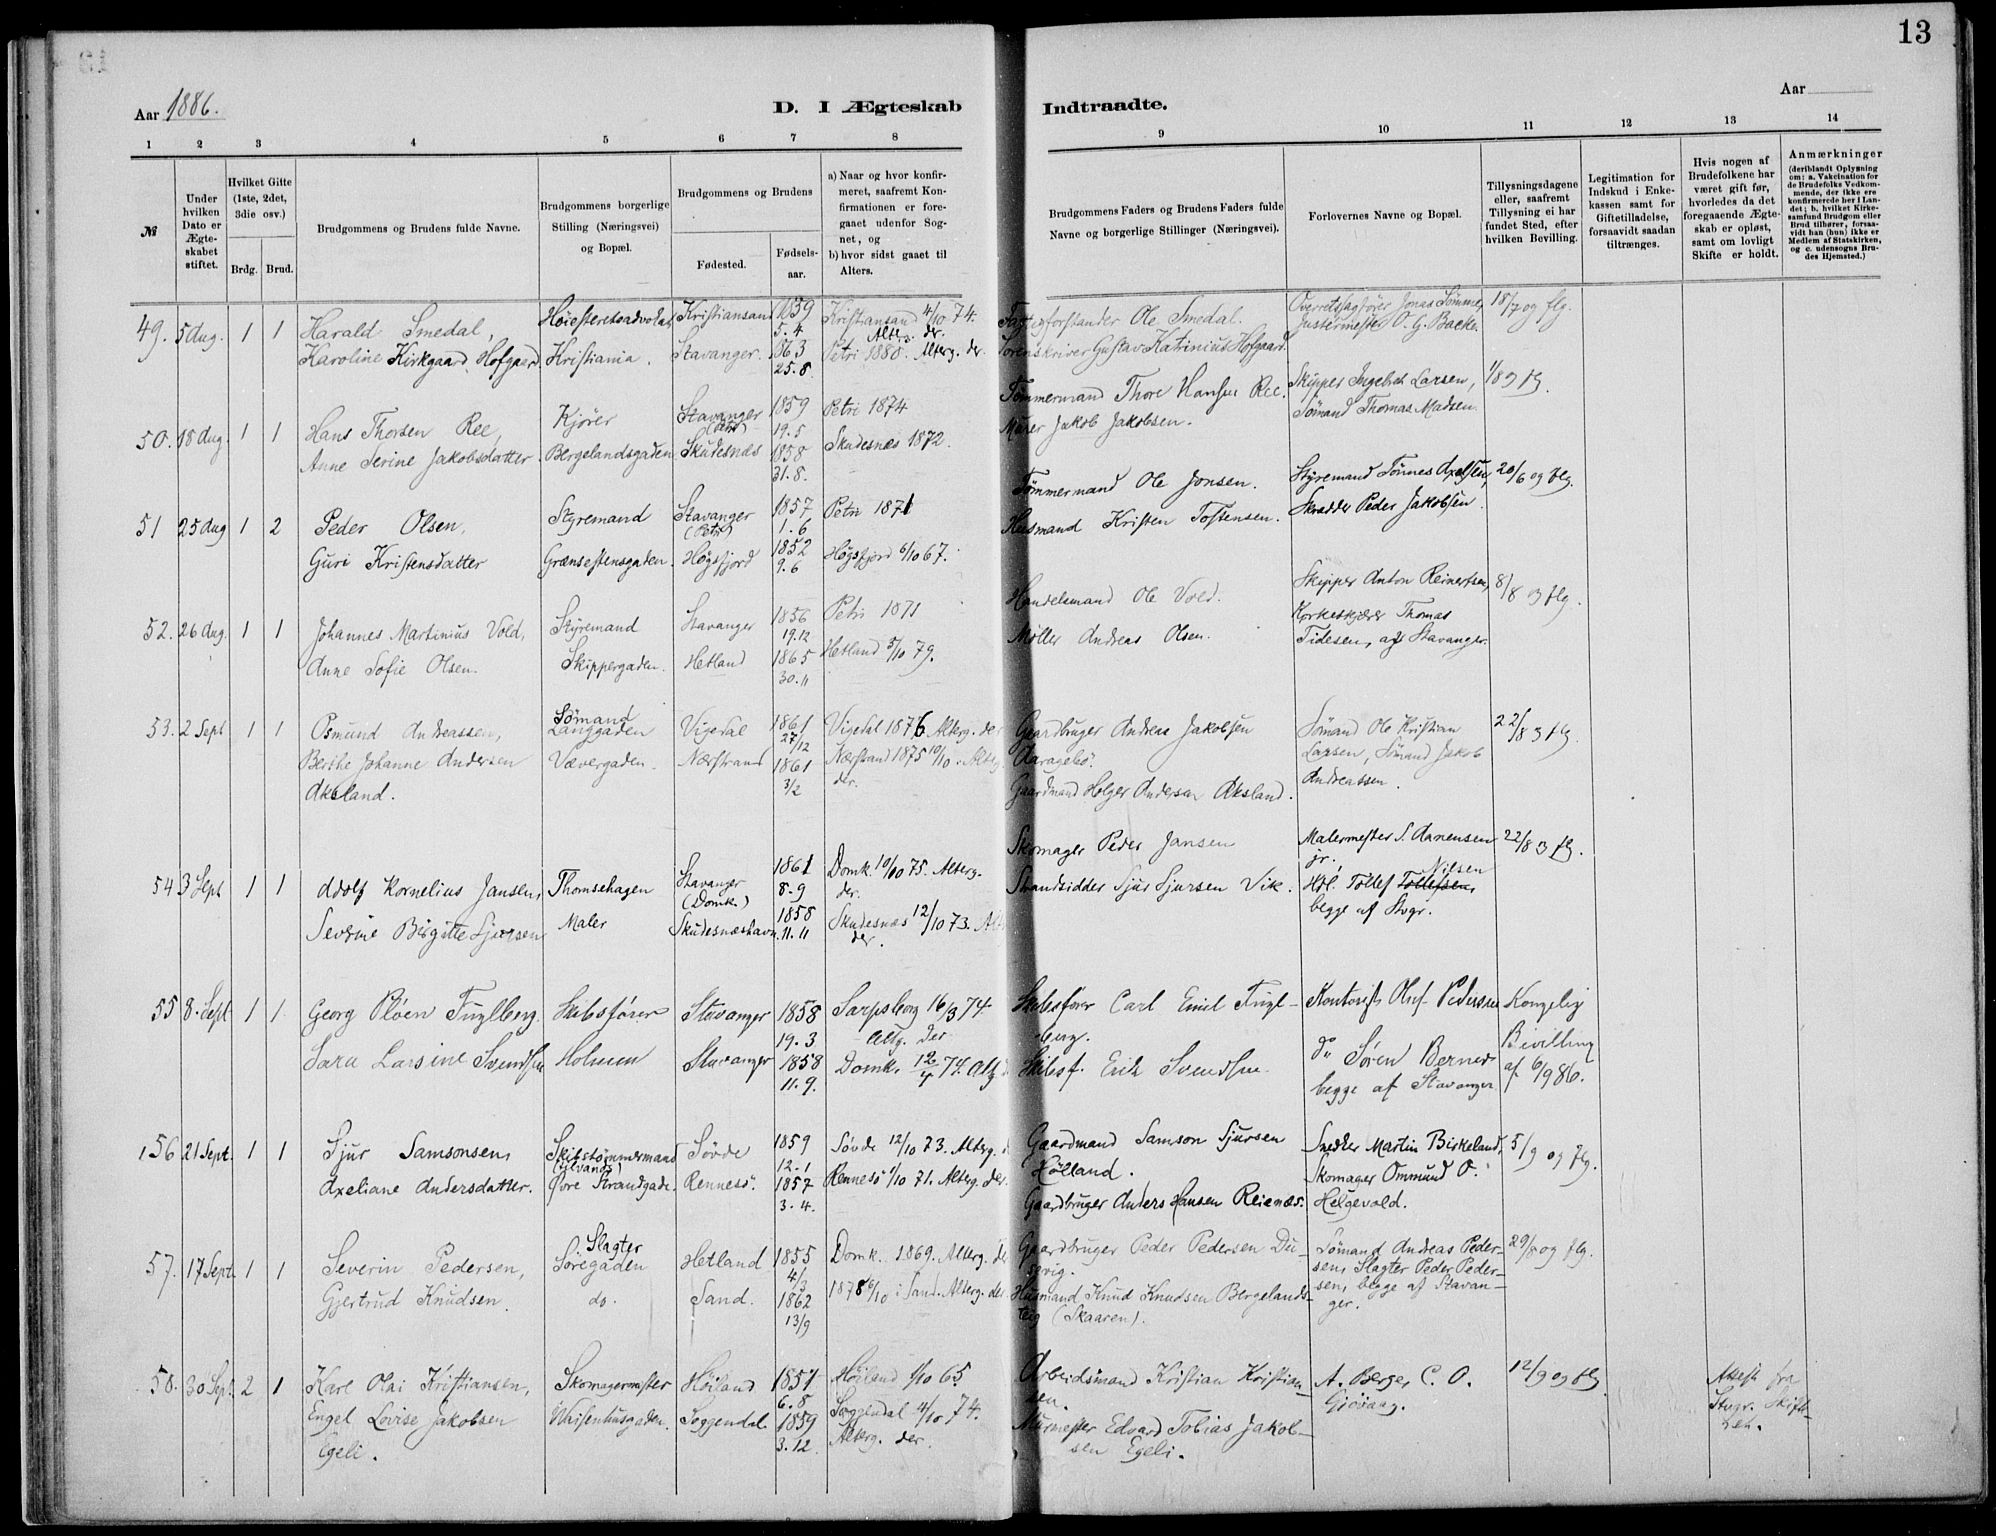 13
Aar 1886.
D. I Ægteskab Indtraadte.
Aar
1 2 3 4 5 6 7 8 9 10 11 12 13 14
№
Under hvilken Dato er Ægteskabet stiftet.
Hvilket Gifte (1ste, 2det, 3die osv.)
Brdg. Brud.
Brudgommens og Brudens fulde Navne.
Brudgommens borgerlige Stilling (Næringsvei) og Bopæl.
Brudgommens og Brudens
Fødested. Fødselsaar.
a) Naar og hvor konfirmeret, saafremt Konfirmationen er foregaaet udenfor Sognet, og
b) hvor sidst gaaet til Alters.
Brudgommens Faders og Brudens Faders fulde Navne og borgerlige Stillinger (Næringsvei).
Forlovernes Navne og Bopæl.
Tillysningsdagene eller, saafremt Tillysning ei har fundet Sted, efter hvilken Bevilling.
Legitimation for Indskud i Enkekassen samt for Giftetilladelse, forsaavidt saadan tiltrænges.
Hvis nogen af Brudefolkene har været gift før, hvorledes da det foregaaende Ægteskab er opløst, samt om lovligt Skifte er holdt.
Anmærkninger (deriblandt Oplysning om: a. Vakcination for de Brudefolks Vedkommende, der ikke ere konfirmerede her i Landet; b. hvilket Kirkesamfund Brudgom eller Brud tilhører, forsaavidt han (hun) ikke er Medlem af Statskirken, og c. udensogns Brudes Hjemsted.)
49. 5 Aug. 1 1 Harald Smedal, Høiesteretsadvokat Kristiansand 1859 5.4 Kristiansand 4/10 74. Alterg. der.
Karoline Kirkgaard Hofgaard Kristiania. Stavanger. 1863 25.8 Petri 1880. Alterg. der.
Ole Smedal.
Sorenskriver Gustav Katrinius Hofgaard.
Overretssagfører Jonas Sømme,
Justermester O. G. Backe.
18/7 og flg.
50. 18 Aug. 1 1 Hans Thorsen Ree, Kjører Stavanger (Petri) 1859 19.5 Petri 1874
Anne Serine Jakobsdatter. Bergelandsgaden Skudesnæs 1858 31.8. Skudesnæs 1872.
Tømmermand Thore Hansen Ree.
Murer Jakob Jakobsen.
Skipper Ingebret Larsen,
Sømand Thomas Madsen.
1/8 og flg.
51 25 Aug 1 2 Peder Olsen, Styremand Stavanger (Petri) 1857 1.6 Petri 1871
Guri Kristensdatter Grænsestensgaden. Høgsfjord 1852 9.6 Høgsfjord 6/10 67.
Tømmermand Ole Jonsen.
Husmand Kristen Tostensen.
Styremand Tønnes Axelsen,
Skrædder Peder Jakobsen.
20/6 og flg.
52. 26 Aug. 1 1 Johannes Martinius Vold, Styremand Stavanger 1856 19.12 Petri 1871
Anne Sofie Olsen. Skippergaden. Hetland 1865 30.11 Hetland 5/10 79.
Handelsmand Ole Vold.
Møller Andreas Olsen.
Skipper Anton Reinertsen,
Korkeskjærer Thomas
Tidesen, af Stavanger.
8/8 og flg.
53. 2 Sept 1 1 Osmund Andreassen, Sømand Langgaden Vigedal 1861 27/12 Vigedal 1876. Alterg. der
Berthe Johanne Andersen Aksland. Vævergaden. Nærstrand 1861 3/2 Nærstrand 1875 10/10. Alterg. der.
Gaardbruger Andreas Jakobsen
Gaardmand Holger Andersen Aksland.
Sømand Ole Kristian
Larsen, Sømand Jakob
Andreassen.
22/8 og flg.
54 3 Sept 1 1 Adolf Kornelius Jansen, Thomsehagen Stavanger (Domk.) 1861 8.9 Domk. 10/10 75. Alterg. der.
Severine Birgitte Sjursen Maler Skudesnæshavn. 1858 11.11 Skudesnæs 12/10 73. Alt der.
Skomager Peder Jansen
Strandsidder Sjur Sjursen Vik.
Malermester S. Danensen jr.
Tollef Tollefsen, Nilsen
begge af Stvgr.
22/8 og flg.
55 8. Sept 1 1 Georg Pløen Fuglberg. Skibsfører Stavanger 1858 19.3 Sarpsborg 16/3 74. Altg. der
Sara Larsine Svendsen Holmen Stavanger 1858 11.9. Domk. 12/4 74. Altg
Skibsfører Carl Emil Fuglberg.
Skibsf. Erik Svendsen.
Kontorist Oluf Pedersen
do Søren Berner
begge af Stavanger
Kongelig Bevilling af 6/9 86.
56 21 Sept. 1 1 Sjur Samsonsen Skibstømmermand Søvde 1859 12.1 Søvde 12/10 73. Alterg.
Axeliane Andersdatter. Øvre Strandgade. Rennesø. 1857 3.4. Rennesø 1/10 71. Alterg. der.
Gaardmand Samson Sjursen
Hølland.
Gaardbruger Anders Hansen Reienæs.
Snedker Martin Birkeland,
Skomager Ommund O.
Helgevold.
5/9 og flg.
57. 17 Sept. 1 1 Severin Pedersen, Slagter Søregaden Hetland 1855 4/3 Domk. 1869. Alterg. de
Gjertrud Knudsen. do. Sand. 1862 13/9 1878 6/10 i Sand. Alterg. der
Gaardbruger Peder Pedersen Dusevig.
Husmand Knud Knudsen Bergelandsteig (Skaaren).
Sømand Andreas Pedersen,
Slagter Peder Pedersen,
begge af Stavanger.
29/8 og flg.
58. 30 Sept. 2 1 Karl Olai Kristiansen, Skomagermester Høiland 1851 6.8 Høiland 1/10 65
Engel Lovise Jakobsen Egeli. Waisenhusgaden. Soggendal. 1859 3.12. Soggendal 4/10 74. Alterg. der.
Arbeidsmand Kristian Kristiansen.
Murmester Edvard Tobias Jakobsen Egeli.
A. Berges C. O.
Giøvaag.
12/9 og flg.
Attest fra
Stvgr. Skifteret.